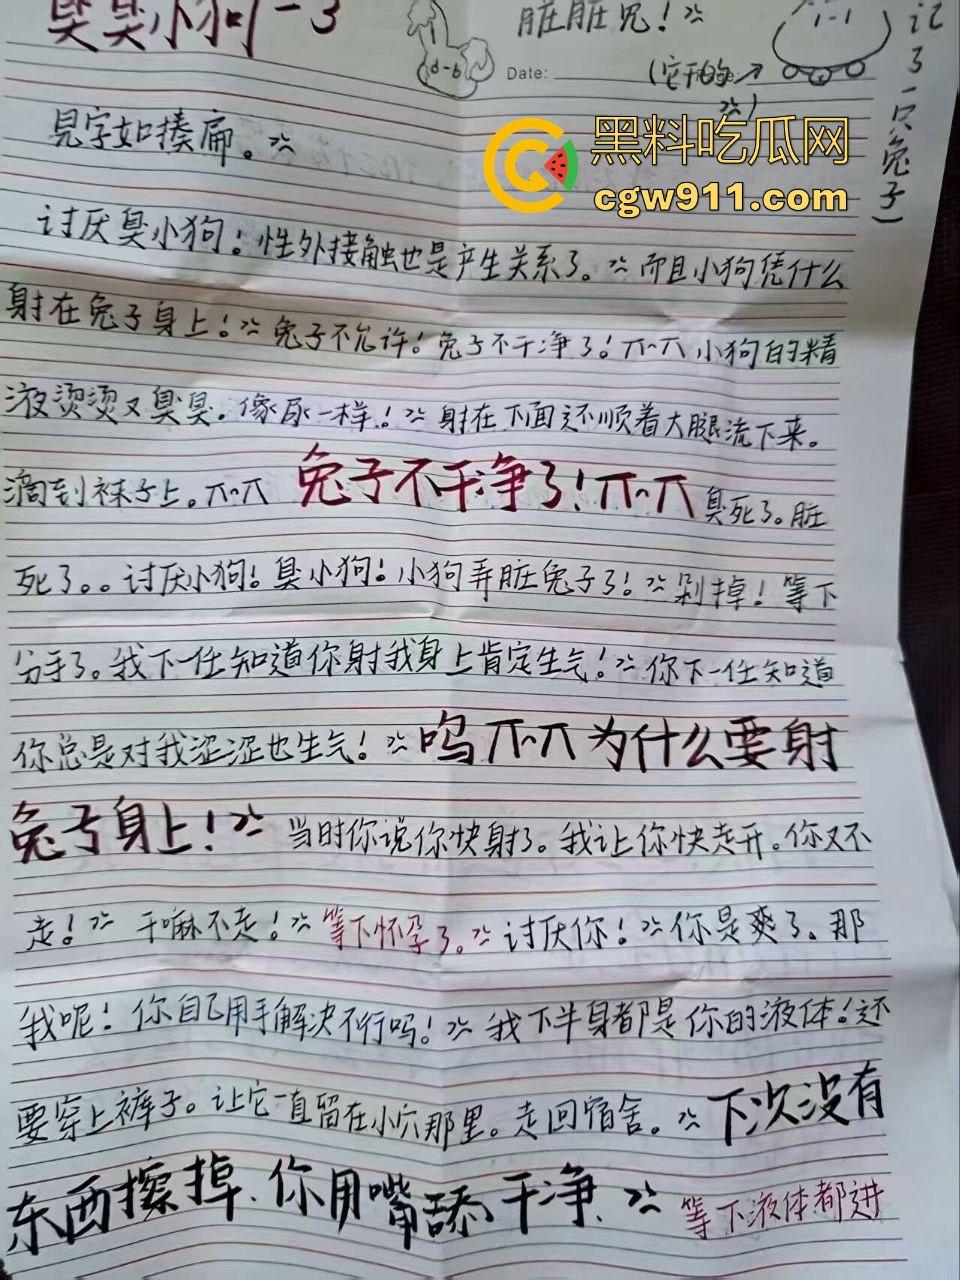 臭臭小狗-3
脏脏兔!
1-1
记了一只兔子)
d-b
Date:
(它干的
见字如揍扁。
黑料吃瓜网
cgw911.com
讨厌臭小狗!性外接触也是产生关系了。而且小狗凭什么
射在兔子身上!兔子不允许!兔子不干净了!ㄒ^ㄒ小狗的精
液烫烫又臭臭。像尿一样!射在下面还顺着大腿流下来。
滴到袜子上。ㄒ^ㄒ 兔子不干净了!ㄒ^ㄒ臭死了。脏
死了。。讨厌小狗!臭小狗!小狗弄脏兔子了!剁掉!等下
分手了。我下一任知道你射我身上肯定生气!你下一任知道
你总是对我涩涩也生气!呜ㄒ^ㄒ为什么要射
兔子身上!当时你说你快射了。我让你快走开。你又不
走!干嘛不走!等下怀孕了。讨厌你!你是爽了。那
我呢!你自己用手解决不行吗!我下半身都是你的液体!还
要穿上裤子。让它一直留在小穴那里。走回宿舍。下次没有
东西擦掉、你用嘴舔干净、等下液体都进